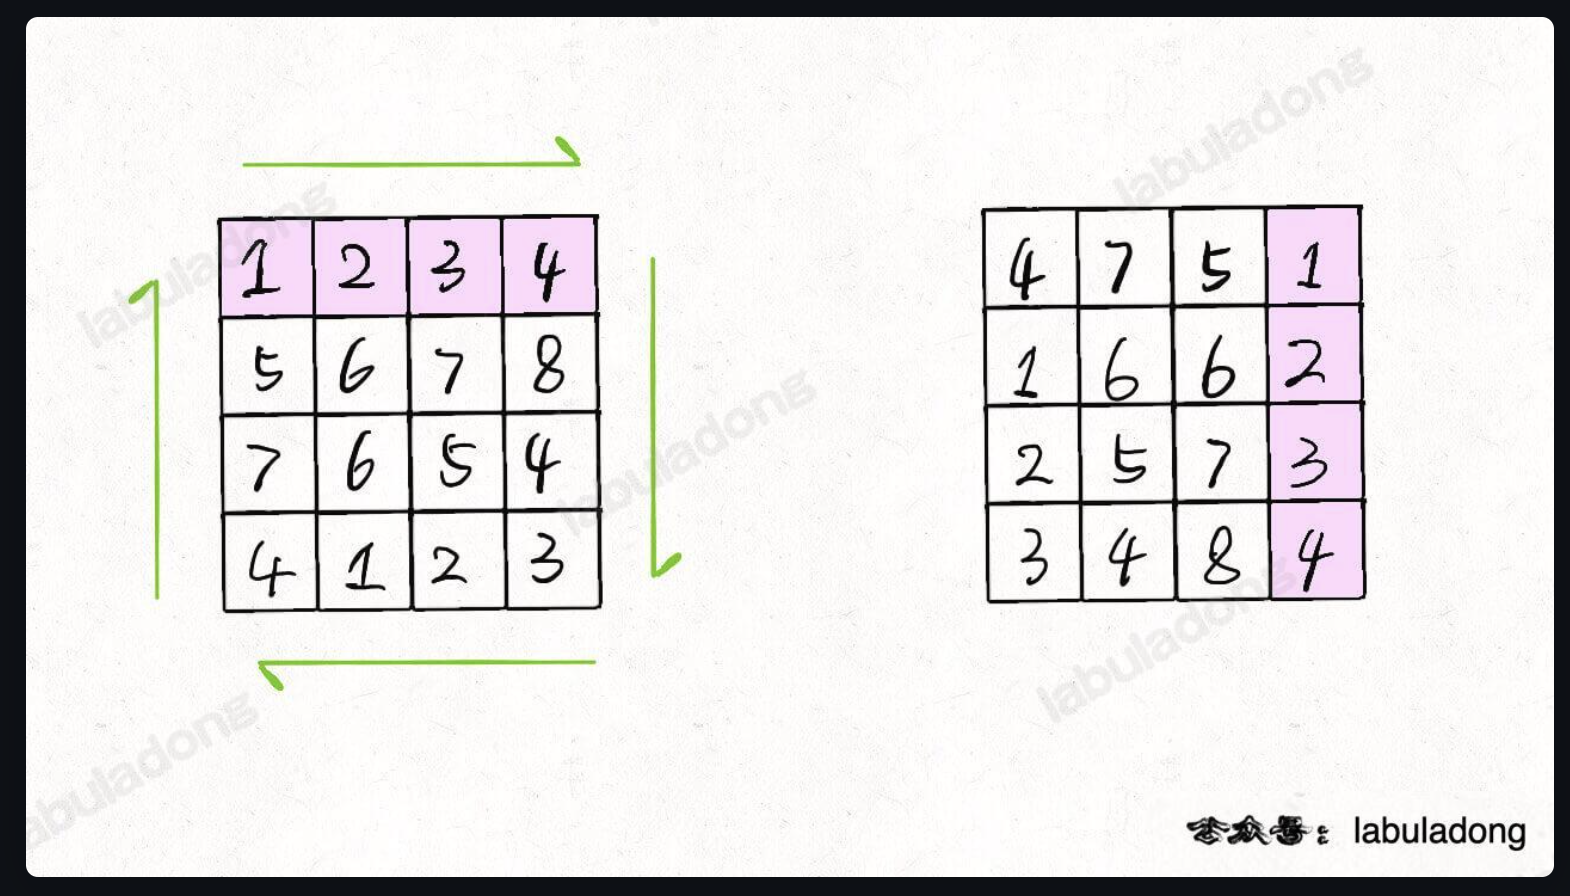 1 2 3 4
5 6 7 8
7 6 5 4
4 1 2 3
4 7 5 1
1 6 6 2
2 5 7 3
3 4 8 4
labuladong
labuladong
labuladong
labuladong
labuladong
公众号: labuladong